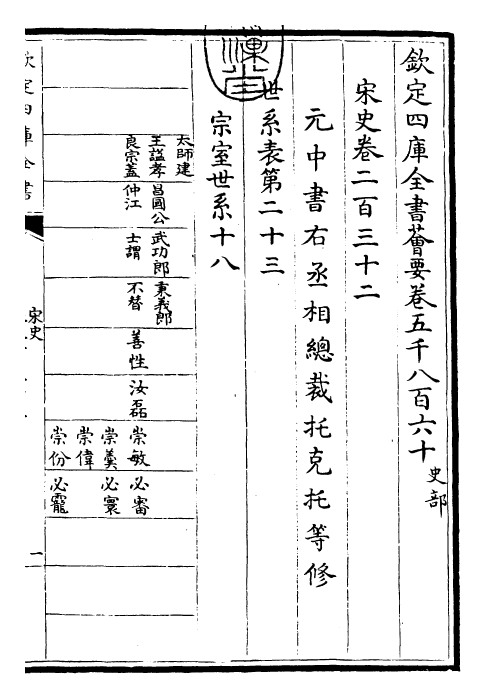 欽定四庫全書薈要卷五千八百六十 史部
宋史卷二百三十二
元中書右丞相總裁托克托等修
世系表第二十三
宗室世系十八
太師建
王諡孝
良宗蓋
昌國公
仲江
武功郎
士謂
秉義郎
不替
善性
汝磊
崇敏
崇羹
崇偉
崇份
必審
必寰
必龗
欽定四庫全書
宋史
一